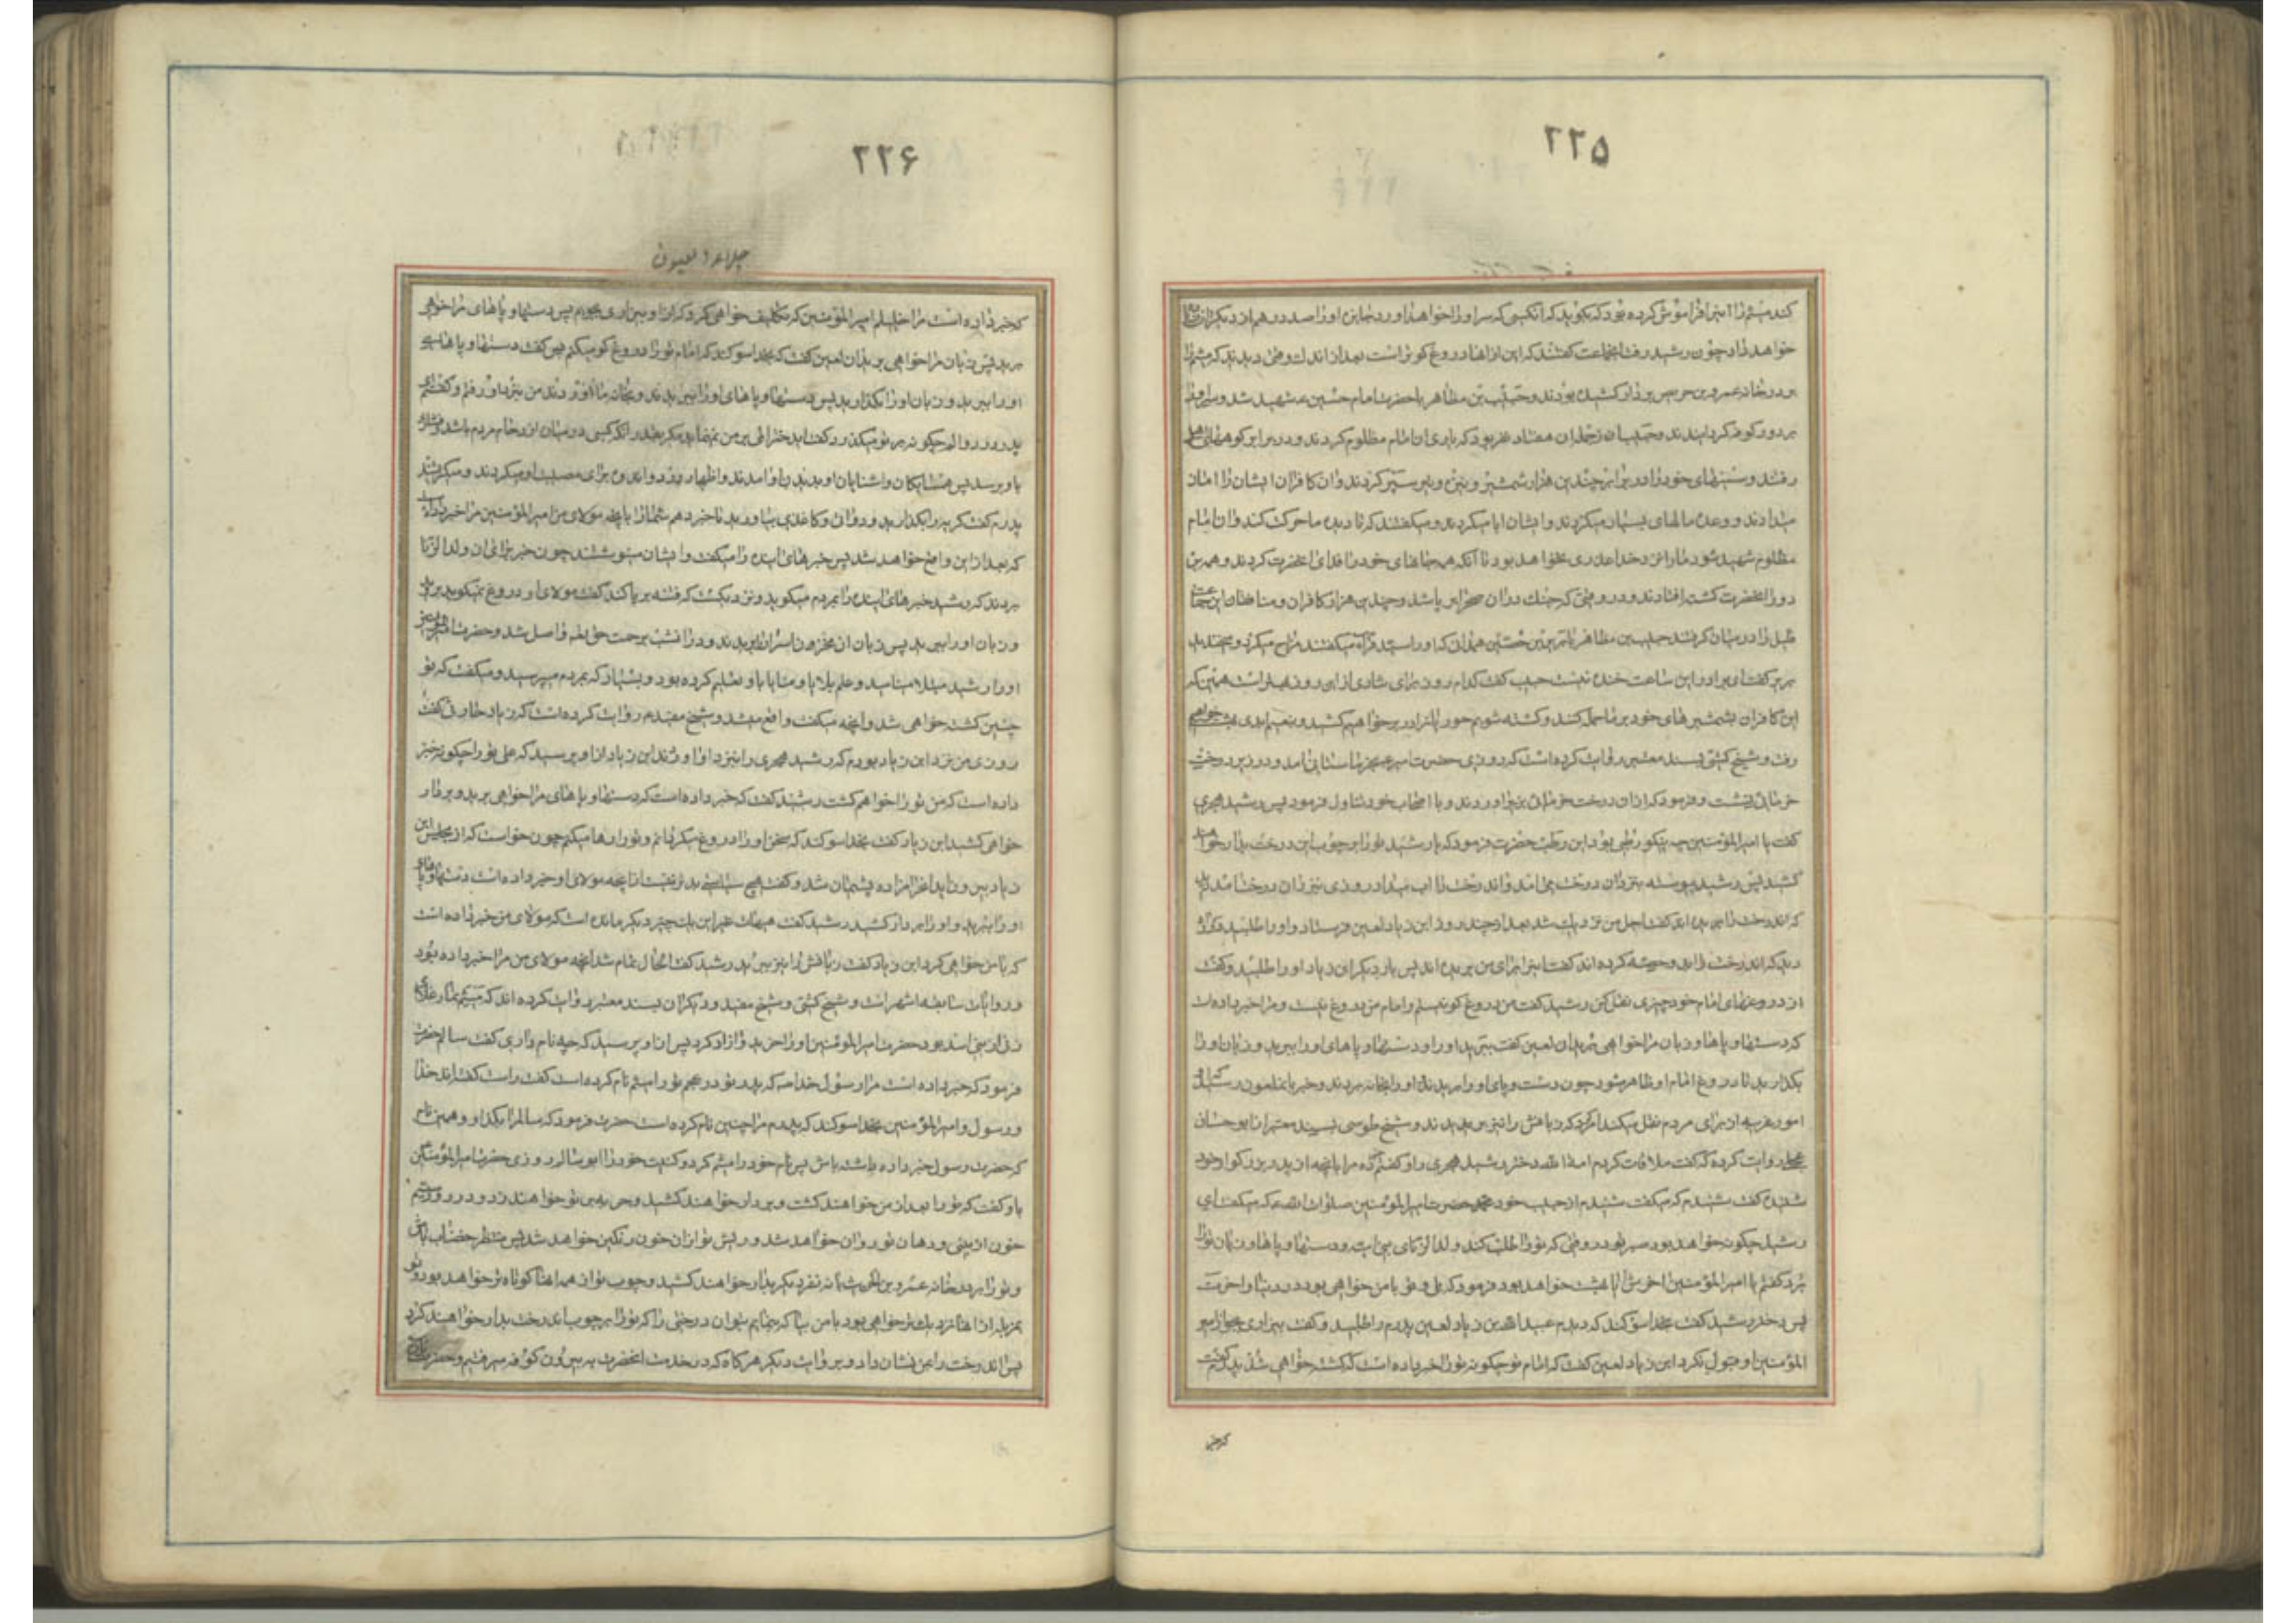 ۲۲۵
کند میثم را این فراموش کرده بود که بگوید که آنکسی که سر او را خواهد آورد بجایزه او را صد درهم از دیگران
خواهند داد چون رشید رفت آنجماعت گفتند که این از آنها دروغ گوتر است بعد از اندک وقتی دیدند که میثم را
بر در خانه عمرو بن حریث بر دار کشیده بودند و حبیب بن مظاهر با حضرت امام حسین شهید شد و سر او را
بر دور کوفه گردانیدند و حبیب از جمله آن هفتاد نفر بود که یاری آن امام مظلوم کردند و در برابر کوههای
رفتند و سینهای خود را در برابر چندین هزار شمشیر و نیزه و تیر سپر کردند و آن کافران ایشان را امان
میدادند و وعده مالهای بسیار میکردند و ایشان ابا میکردند و میگفتند که تا دیده ما حرکت کند و آن امام
مظلوم شهید شود ما را نزد خدا عذری نخواهد بود تا آنکه همه جانهای خود را فدای آنحضرت کردند و همه بر
دور آنحضرت کشته افتادند و در وقتی که
قبل را در میان گرفتند حبیب بن مظاهر با بریر بن حصین همدانی که او را سید قراء میگفتند مزاح میکرد و میخندید
بریر گفت ای برادر این ساعت خنده نیست حبیب گفت کدام روز برای شادی از این روز بهتر است همین که
این کافران بشمشیرهای خود بر ما حمله کنند و کشته شویم حور العین را در بر خواهیم کشید و بنعیم ابدی بهشت خواهیم
رفت و شیخ کشی بسند معتبر روایت کرده است که روزی حضرت امیر ببستانی آمد و در زیر درخت
خرمائی نشست و فرمود که از آن درخت خرمائی بزیر آوردند و با اصحاب خود تناول فرمود پس رشید هجری
گفت یا امیر المؤمنین چه نیکو رطبی بود این رطب حضرت فرمود که یا رشید تو را بر چوب این درخت بدار خواهند
کشید پس رشید پیوسته بنزد آن درخت می آمد و آن درخت را آب میداد روزی بنزد آن درخت آمد دید
که آن درخت را بریده اند گفت اجل من نزدیک شد بعد از چند روز ابن زیاد لعین فرستاد و او را طلبید در راه
دید که آن درخت را بدو حصه کرده اند گفت اینرا برای من بریده اند پس بار دیگر ابن زیاد او را طلبید و گفت
از دروغهای امام خود چیزی نقل کن رشید گفت من دروغ گو نیستم و امام من دروغ گو نیست و مرا خبر داده است
که دستها و پاها و زبان مرا خواهی برید آن لعین گفت ببرید او را و دستها و پاهای او را ببرید و زبان او را
بگذارید تا دروغ امام او ظاهر شود چون دست و پای او را بریدند و او را بخانه بردند و خبر بآن ملعون رسید که او
امور غریبه از برای مردم نقل میکند امر کرد که زبانش را نیز بریدند و شیخ طوسی بسند معتبر از ابو حسان
عجلی روایت کرده که گفت ملاقات کردم امة الله دختر رشید هجری را و گفتم که مرا بآنچه از پدر بزرگوار خود
شنیده گفت شنیدم که میگفت شنیدم از حبیب خود حضرت امیر المؤمنین صلوات الله علیه که میگفت ای
رشید چگونه خواهد بود صبر تو در وقتی که تو را طلب کند ولد الزنای بنی امیه و دستها و پاها و زبان تو را
ببرد گفتم یا امیر المؤمنین آخرش بهشت خواهد بود فرمود که بلی و تو با من خواهی بود در دنیا و آخرت
پس دختر رشید گفت بخدا سوگند که دیدم عبید الله بن زیاد لعین پدرم را طلبید و گفت بیزاری بجوی از امیر
المؤمنین او قبول نکرد ابن زیاد لعین گفت که امام تو چگونه تو را خبر داده است که کشته خواهی شد پدرم گفت
که خبر
۲۲۶
جلاء العیون
که خبر داده است مرا خلیلم امیر المؤمنین که تکلیف خواهی کرد که از او بیزاری بجویم پس دستها و پاهای مرا خواهی
برید پس زبان مرا خواهی برید آن لعین گفت که بخدا سوگند که امام تو را دروغ گو میکنم پس گفت دستها و پاهای
او را ببرید و زبان او را بگذارید پس دستها و پاهای او را بریدند و بخانه ما آوردند من بنزد او رفتم و گفتم ای
پدر درد و الم چگونه بر تو میگذرد گفت ای دختر المی بر من نمی نماید مگر بقدر آنکه کسی در میان ازدحام مردم باشد و فشاری
باو برسد پس همسایگان و آشنایان او بدیدن او آمدند و اظهار درد و اندوه برای مصیبت او میکردند و میگریستند
پدرم گفت گریه را بگذارید و دوات و کاغذی بیاورید تا خبر دهم شما را بآنچه مولای من امیر المؤمنین مرا خبر داده
که بعد از این واقع خواهد شد پس خبرهای آینده را میگفت و ایشان مینوشتند چون خبر برای آن ولد الزنا
بردند که رشید خبرهای آینده را بمردم میگوید و نزدیکست که فتنه برپا کند گفت مولای او دروغ نمیگوید بروید
و زبان او را ببرید پس زبان آن مخزن اسرار را بریدند و در آنشب برحمت حق تعالی واصل شد و حضرت امیر المؤمنین
او را رشید مبتلا مینامید و علم بلایا و منایا باو تعلیم کرده بود و بسیار که بمردم میرسید و میگفت که تو
چنین کشته خواهی شد و آنچه میگفت واقع میشد و شیخ مفید روایت کرده است که زیاد حارثی گفت
روزی من نزد ابن زیاد بودم که رشید هجری را بنزد او آوردند ابن زیاد از او پرسید که علی تو را چگونه خبر
داده است که من تو را خواهم کشت رشید گفت که خبر داده است که دستها و پاهای مرا خواهی برید و بر دار
خواهی کشید ابن زیاد گفت بخدا سوگند که سخن او را دروغ میگردانم و تو را رها میکنم چون خواست که از مجلس ابن
زیاد بیرون آید آن حرامزاده پشیمان شد و گفت هیچ سیاستی بدتر نیست از آنچه مولای او خبر داده است دستها و پاهای
او را ببرید و او را بر دار کشید رشید گفت هیهات غیر این یک چیز دیگر مانده است که مولای من خبر داده است
که با من خواهی کرد ابن زیاد گفت زبانش را نیز ببرید رشید گفت الحال تمام شد آنچه مولای من مرا خبر داده بود
و روایات سابقه اشهر است و شیخ کشی و شیخ مفید و دیگران بسند معتبر روایت کرده اند که میثم تمار غلام
زنی از بنی اسد بود حضرت امیر المؤمنین او را خرید و آزاد کرد پس از او پرسید که چه نام داری گفت سالم حضرت
فرمود که خبر داده است مرا رسول خدا که پدر تو در عجم تو را میثم نام کرده است گفت راست گفته اند خدا
و رسول و امیر المؤمنین بخدا سوگند که پدرم مرا چنین نام کرده است حضرت فرمود که سالم را بگذار و همین نام
که حضرت رسول خبر داده باشد باش پس نام خود را میثم کرد و کنیت خود را ابو سالم روزی حضرت امیر المؤمنین
باو گفت که تو را بعد از من خواهند گرفت و بر دار خواهند کشید و حربه بر تو خواهند زد و در روز سیم
خون از بینی و دهان تو روان خواهد شد و ریش تو از آن خون رنگین خواهد شد پس منتظر خضاب باش
و تو را بر در خانه عمرو بن حریث با نه نفر دیگر بدار خواهند کشید و چوب تو از همه آنها کوتاه تر خواهد بود و تو
بمنزله از آنها نزدیک تر خواهی بود با من بیا که بنمایم بتو آن درختی را که تو را بر چوب آن درخت بدار خواهند کرد
پس آن درخت را بمن نشان داد و بروایت دیگر هرگاه که در خدمت آنحضرت به بیرون کوفه میرفتیم و حضرت